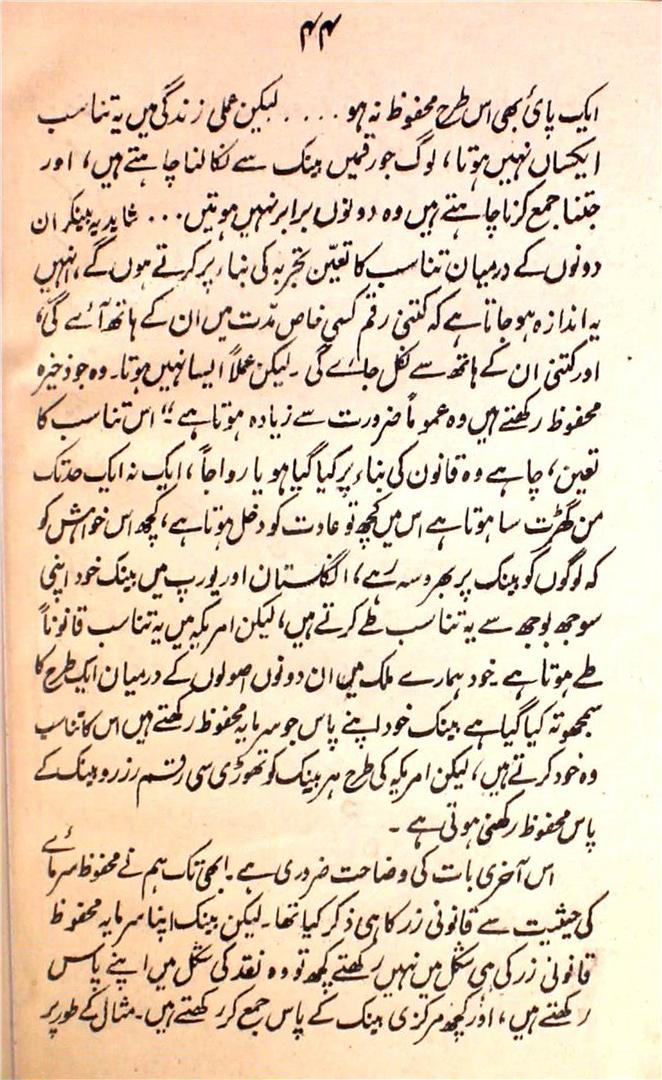 ۴۴
ایک پائی بھی اس طرح محفوظ نہ ہو .... لیکن عملی زندگی میں یہ تناسب
ایکساں نہیں ہوتا، لوگ جو رقمیں بینک سے نکالنا چاہتے ہیں، اور
جتنا جمع کرنا چاہتے ہیں وہ دونوں برابر نہیں ہوتیں ... شاید یہ بینکر ان
دونوں کے درمیان تناسب کا تعیّن تجربہ کی بناء پر کرتے ہوں گے، انہیں
یہ اندازہ ہو جاتا ہے کہ کتنی رقم کسی خاص مدّت میں ان کے ہاتھ آئے گی،
اور کتنی ان کے ہاتھ سے نکل جائے گی ۔ لیکن عملاً ایسا نہیں ہوتا۔ وہ جو ذخیرہ
محفوظ رکھتے ہیں وہ عموماً ضرورت سے زیادہ ہوتا ہے ۔" اس تناسب کا
تعین، چاہے وہ قانون کی بناء پر کیا گیا ہو یا رواجاً، ایک نہ ایک حد تک
من گھڑت سا ہوتا ہے اس میں کچھ تو عادت کو دخل ہوتا ہے، کچھ اس خواہش کو
کہ لوگوں کو بینک پر بھروسہ رہے، انگلستان اور یورپ میں بینک خود اپنی
سوجھ بوجھ سے یہ تناسب طے کرتے ہیں، لیکن امریکہ میں یہ تناسب قانوناً
طے ہوتا ہے ۔ خود ہمارے ملک میں ان دونوں اصولوں کے درمیان ایک طرح کا
سمجھوتہ کیا گیا ہے بینک خود اپنے پاس جو سرمایہ محفوظ رکھتے ہیں اس کا تناسب
وہ خود کرتے ہیں، لیکن امریکہ کی طرح ہر بینک کو تھوڑی سی رقم رزرو بینک کے
پاس محفوظ رکھنی ہوتی ہے ۔
اس آخری بات کی وضاحت ضروری ہے ۔ ابھی تک ہم نے محفوظ سرمائے
کی حیثیت سے قانونی زر کا ہی ذکر کیا تھا ۔ لیکن بینک اپنا سرمایہ محفوظ
قانونی زر کی ہی شکل میں نہیں رکھتے کچھ تو وہ نقد کی شکل میں اپنے پاس
رکھتے ہیں، اور کچھ مرکزی بینک کے پاس جمع کر رکھتے ہیں۔ مثال کے طور پر